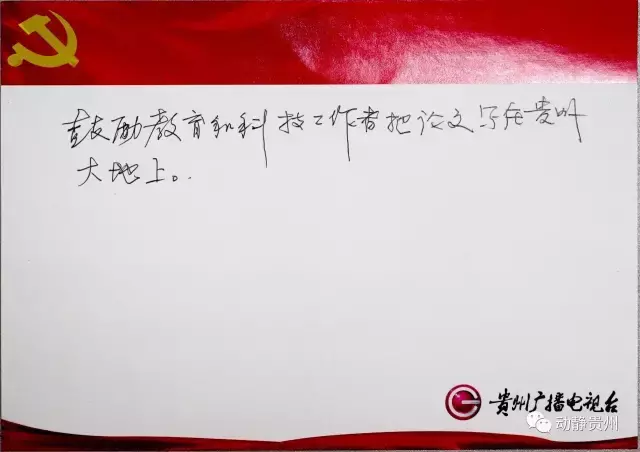 鼓励教育和科技工作者把论文写在贵州
大地上。
贵州广播电视台
动静贵州